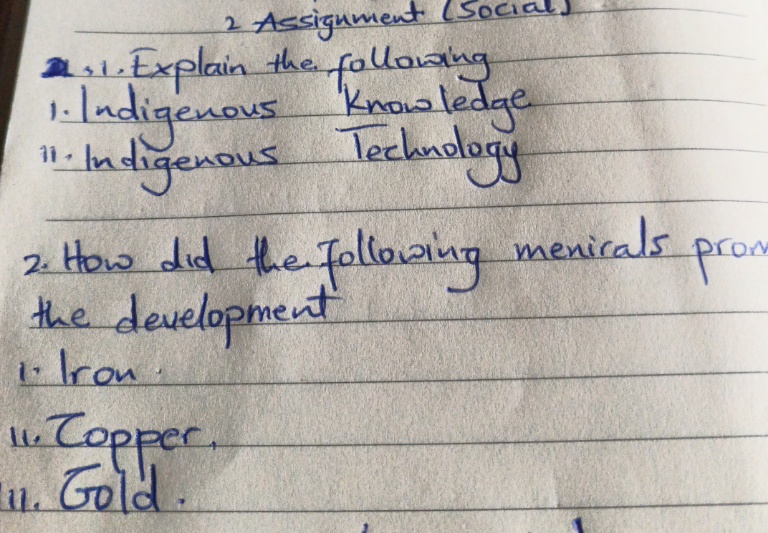 2 Assignment (Social)
1. Explain the following
i. Indigenous Knowledge
ii. Indigenous Technology
2. How did the following menirals prom
the development
i. Iron.
ii. Copper.
ii. Gold.